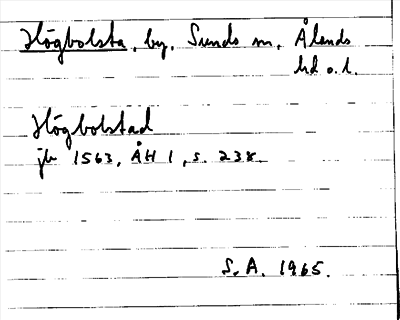 Högbolsta, by, Sunds sn, Ålands
hd o. l.
Högbolstad
jb 1563, ÅH 1, s. 238.
S. A. 1965.